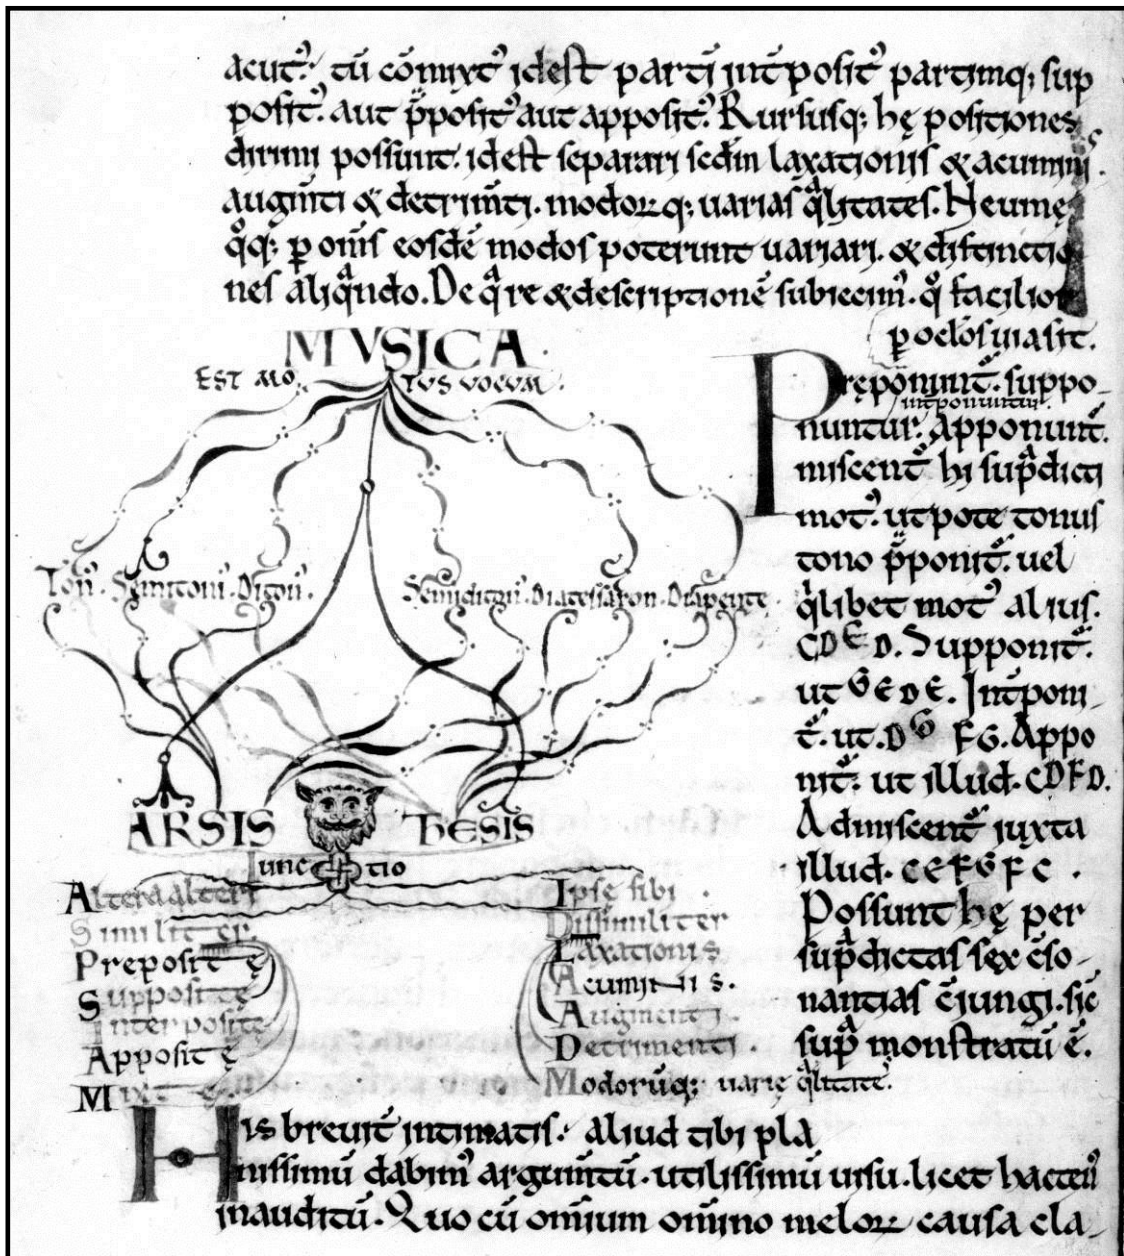 acut᷒. tū cōmixt᷒ idest partī int̄posit᷒ partimq; sup
posit᷒. aut p̄posit᷒ aut apposit᷒. Rursusq; hę positiones
dirimi possunt. idest separari scdm laxationis & acuminis.
augm̄ti & detrim̄ti. modoꝝq; uarias q̄litates. Neumę
q̊q; p om̄s eosdē modos poterunt uariari. & distinctio
nes aliq̄ndo. De q̄ re & descriptionē subiecim᷒. q̊ facilior
p oclos uia sit.
MVSICA.
EST MO TVS VOCVM.
Ton᷒. Semitoni᷒. Diton᷒. Semiditon᷒. Diatessaron. Diapente.
ARSIS THESIS
Iunc tio
Altera alteri
Similiter.
Preposit ę
Supposit ę
Interposite
Apposit ę
Mixt ę.
Ipse sibi.
Dissimiliter
Laxationis
Acuminis.
Augmenti.
Detrimenti.
Modorūq; uarię q̄litate᷒.
Pręponunt᷒. suppo-
int̄ponuntur.
nuntur. Apponunt᷒.
miscent᷒ hi sup̄dicti
mot᷒. utpote tonus
tono p̄ponit᷒. uel
q̄libet mot᷒ alius.
CDED. Supponit᷒.
ut GEDE. Int̄poni-
t᷒. ut. DG FG. Appo
nit᷒. ut illud. CDFD.
Admiscent᷒ iuxta
illud. CEFGFC.
Possunt hę per
sup̄dictas sex c̄so-
nantias c̄iungi. sic
sup̄ monstratū ē.
His breuit᷒ intimatis. aliud tibi pla
nissimū dabim᷒ argum̄tū. utilissimū uisu. licet hacten᷒
inauditū. Quo cū omnium omīno meloꝝ causa cla-